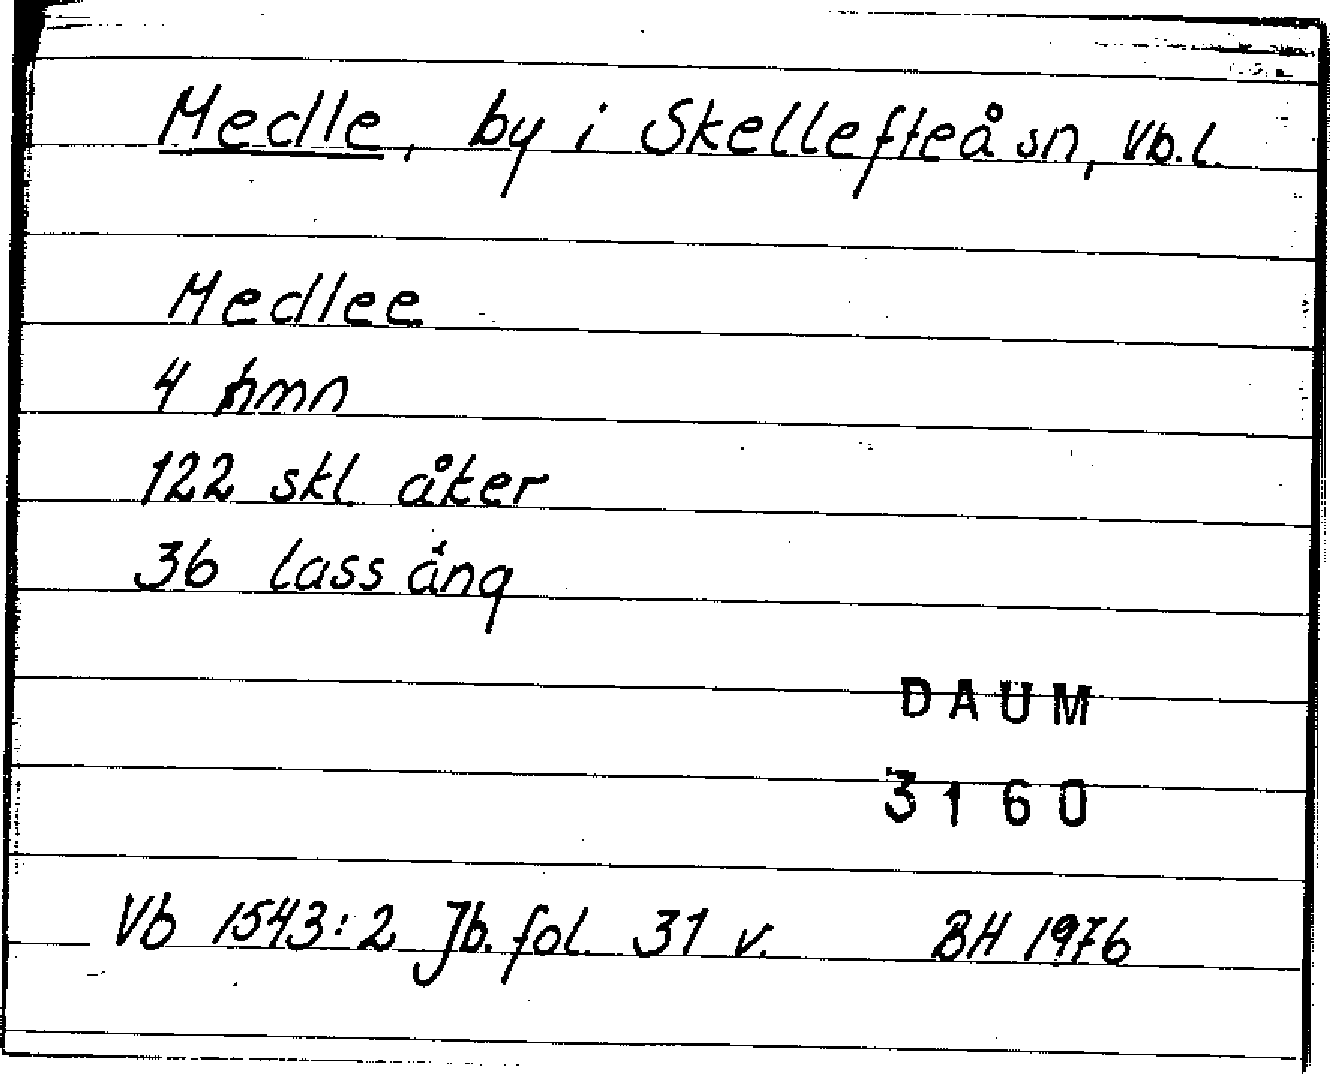 Medle, by i Skellefteå sn, Vb.l.
Medlee
4 hmn
122 skl åker
36 lass äng
DAUM
3160
Vb 1543:2 Jb. fol. 31 v. BH 1976